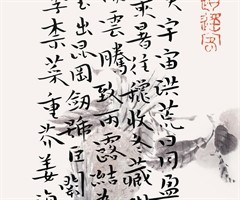 宇宙洪荒日月盈
來暑往穐收冬藏
雲騰致雨露結為
玉出昆岡劒號巨闕
李柰菜重芥姜海